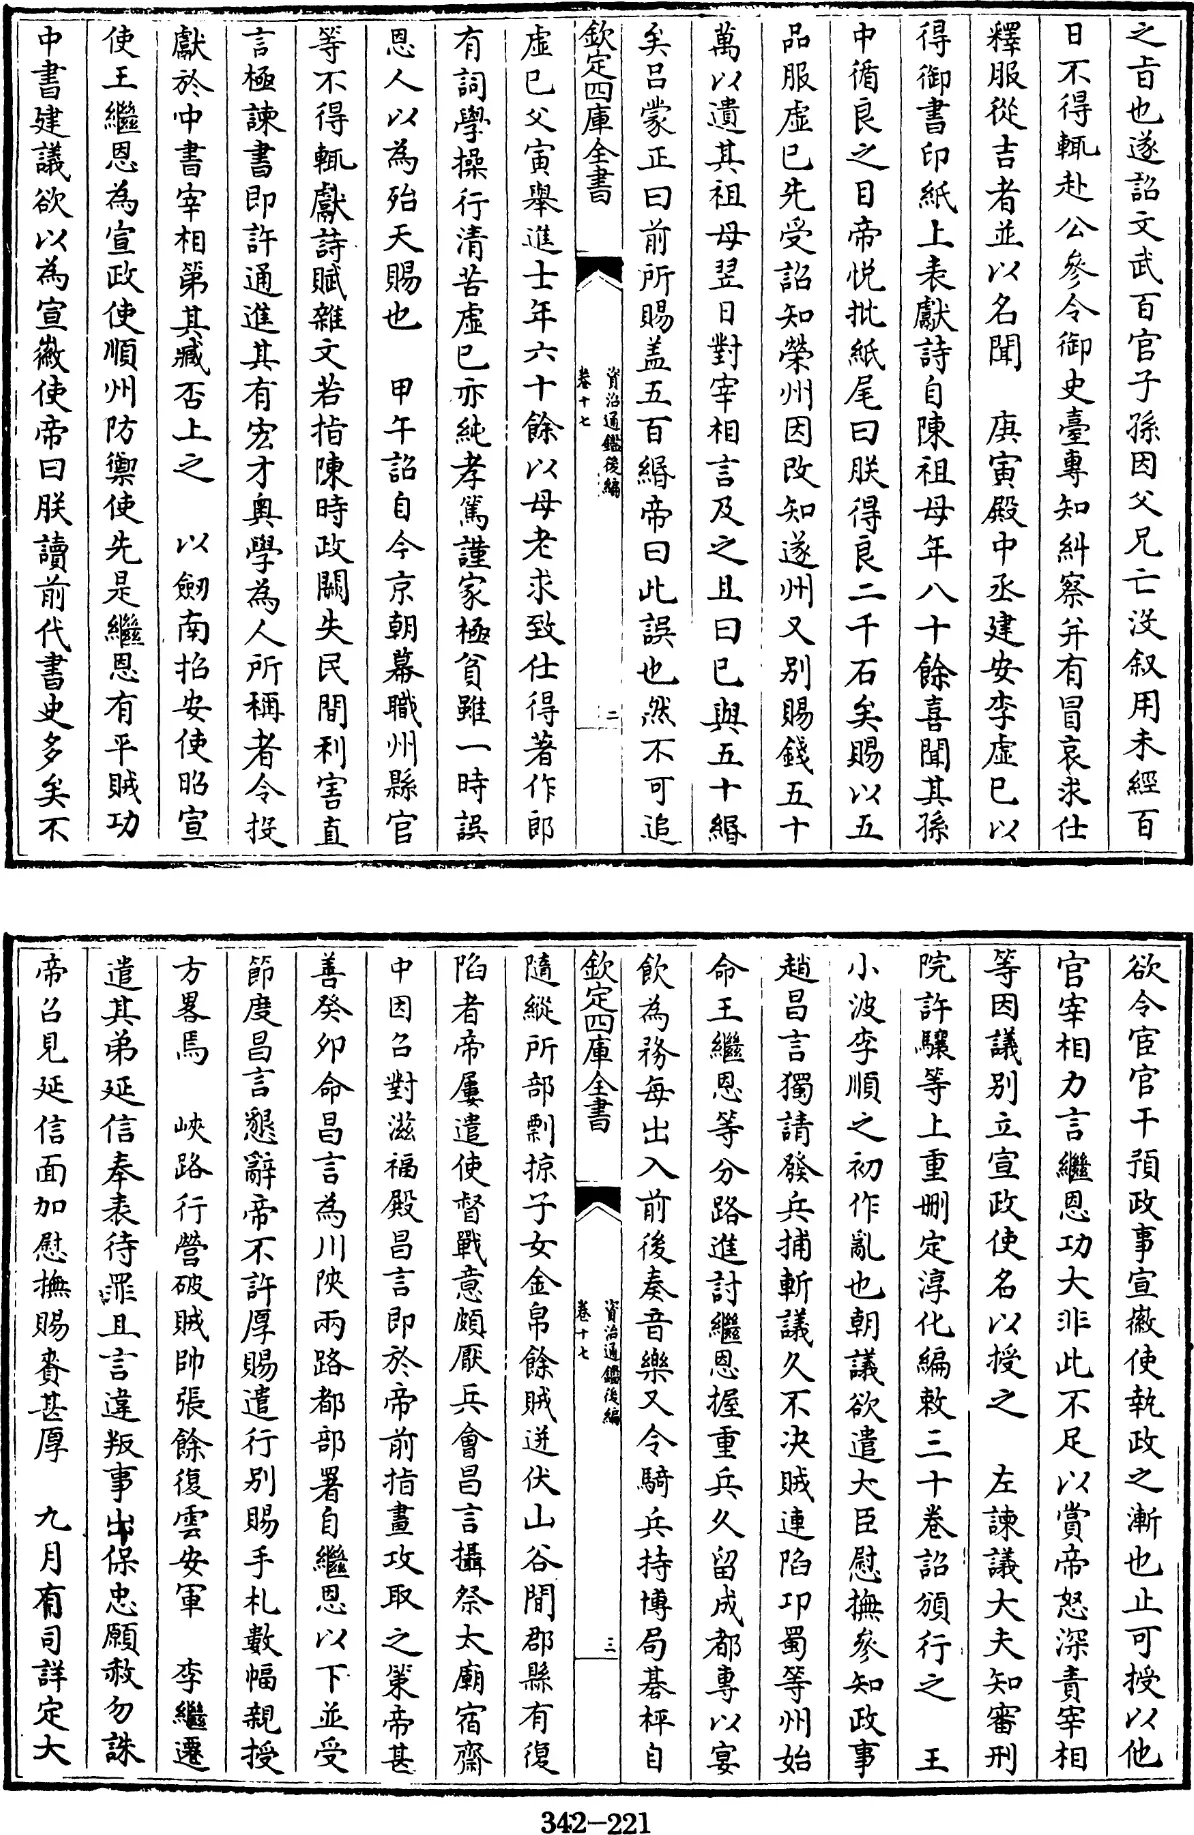 之㫖也遂詔文武百官子孫因父兄亡沒叙用未經百
日不得輒赴公參令御史臺專知糾察并有冒哀求仕
釋服從吉者並以名聞　庚寅殿中丞建安李虛已以
得御書印紙上表獻詩自陳祖母年八十餘喜聞其孫
中循良之目帝悅批紙尾曰朕得良二千石矣賜以五
品服虛已先受詔知榮州因改知遂州又别賜錢五十
萬以遺其祖母翌日對宰相言及之且曰已與五十緡
矣吕蒙正曰前所賜盖五百緡帝曰此誤也然不可追
欽定四庫全書
資治通鑑後編
卷十七
二
虛已父寅舉進士年六十餘以母老求致仕得著作郎
有詞學操行清苦虛已亦純孝篤謹家極貧雖一時誤
恩人以為殆天賜也　甲午詔自今京朝幕職州縣官
等不得輒獻詩賦雜文若指陳時政闕失民間利害直
言極諫書即許通進其有宏才奥學為人所稱者令投
獻於中書宰相第其臧否上之　以劒南招安使昭宣
使王繼恩為宣政使順州防禦使先是繼恩有平賊功
中書建議欲以為宣徽使帝曰朕讀前代書史多矣不
欲令宦官干預政事宣徽使執政之漸也止可授以他
官宰相力言繼恩功大非此不足以賞帝怒深責宰相
等因議别立宣政使名以授之　左諫議大夫知審刑
院許驤等上重刪定淳化編敕三十巻詔頒行之　王
小波李順之初作亂也朝議欲遣大臣慰撫參知政事
趙昌言獨請發兵捕斬議久不决賊連陷卭蜀等州始
命王繼恩等分路進討繼恩握重兵久留成都專以宴
飲為務每出入前後奏音樂又令騎兵持博局碁枰自
欽定四庫全書
資治通鑑後編
巻十七
三
隨縱所部剽掠子女金帛餘賊迸伏山谷間郡縣有復
陷者帝屢遣使督戰意頗厭兵會昌言攝祭太廟宿齋
中因召對滋福殿昌言即於帝前指畫攻取之策帝甚
善癸卯命昌言為川陜兩路都部署自繼恩以下並受
節度昌言懇辭帝不許厚賜遣行别賜手札數幅親授
方畧焉　峽路行營破賊帥張餘復雲安軍　李繼遷
遣其弟延信奉表待罪且言違叛事出保忠願赦勿誅
帝召見延信面加慰撫賜賚甚厚　九月有司詳定大
342-221